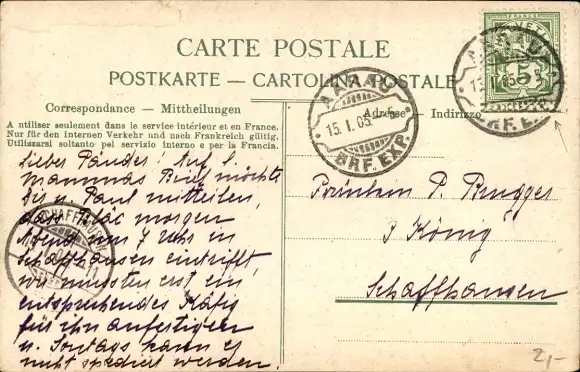 CARTE POSTALE
POSTKARTE — CARTOLINA POSTALE
Correspondance — Mittheilungen
A utiliser seulement dans le service intérieur et en France.
Nur für den internen Verkehr und nach Frankreich gültig.
Utilizzarsi soltanto pel servizio interno e per la Francia.
Adresse — Indirizzo
AARAU
15.I.05
BRF. EXP.
AARAU
15.I.05
BRF. EXP.
5
SCHAFFHAUSEN
Mammas Brief möchte
u. Paul mitteilen,
dass morgen
Abend um 7 Uhr in
Schaffhausen eintrifft,
wir mussten erst ein
entsprechendes Käfig
für ihn anfertigen
u. Sontags kann er
nicht spediert werden.
Fräulein P. Brugger
z König
Schaffhausen
2,-